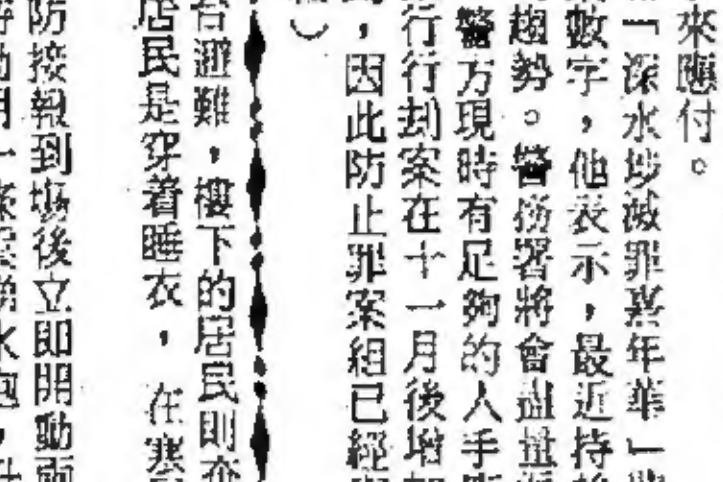 來應付。
「深水埗滅罪嘉年華」
數字，他表示，最近持
趨勢。警務署將會盡量
警方現時有足夠的人手
行行刧案在十一月後增加
，因此防止罪案組已經
）
台避難，樓下的居民則亦
居民是穿着睡衣，在寒
防接報到塲後立即開動兩